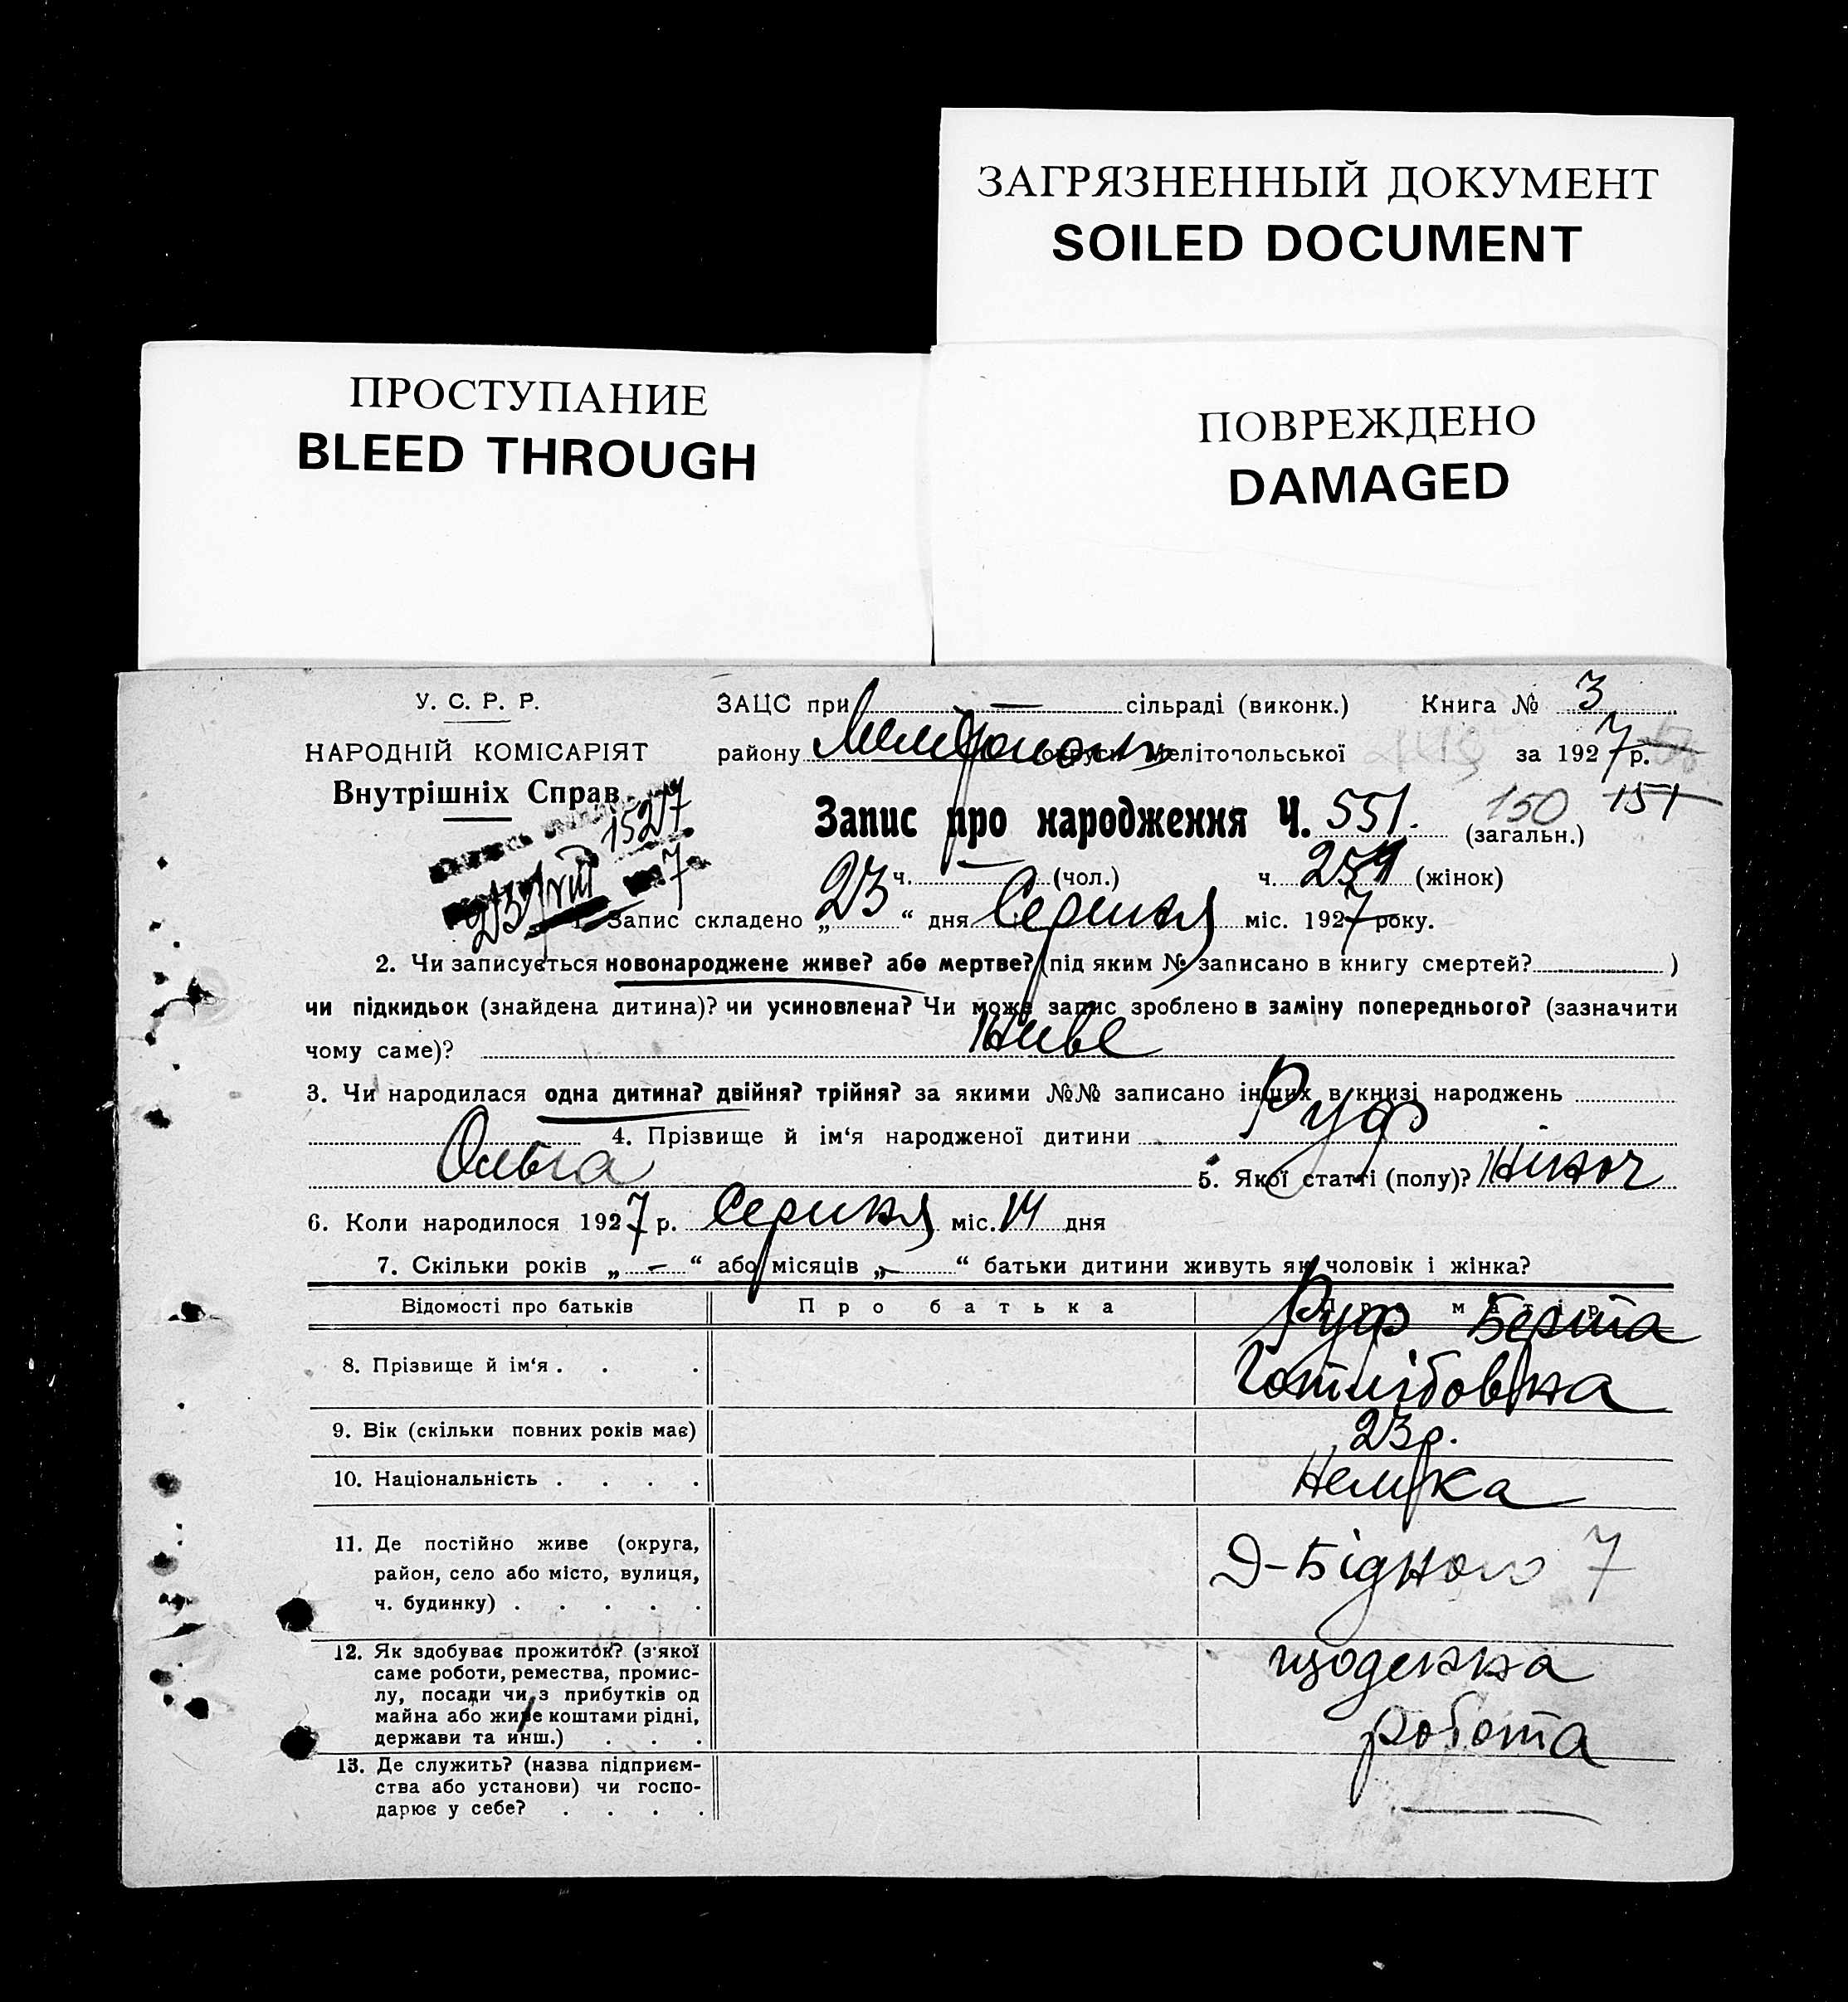 ЗАГРЯЗНЕННЫЙ ДОКУМЕНТ
SOILED DOCUMENT
ПРОСТУПАНИЕ
BLEED THROUGH
ПОВРЕЖДЕНО
DAMAGED
У. С. Р. Р.
ЗАЦС при — сільраді (виконк.) Книга № 3
НАРОДНІЙ КОМІСАРІЯТ
району округи Мелітопольської за 1927 р.
Внутрішніх Справ
1527
Запис про народження Ч. 551. 150 151
(загальн.)
ч. — (чол.) ч. 254 (жінок)
23/VIII 7
1. Запис складено „23“ дня Серпня міс. 1927 року.
2. Чи записується новонароджене живе? або мертве? (під яким № записано в книгу смертей? )
чи підкидьок (знайдена дитина)? чи усиновлена? Чи може запис зроблено в заміну попереднього? (зазначити
чому саме)? Живе
3. Чи народилася одна дитина? двійня? трійня? за якими №№ записано інших в книзі народжень
4. Прізвище й ім‘я народженої дитини Руф
Ольга 5. Якої статті (полу)? Жіноч
6. Коли народилося 1927 р. Серпня міс. 14 дня
7. Скільки років „—“ або місяців „—“ батьки дитини живуть як чоловік і жінка?
Відомості про батьків Про батька Про матір
8. Прізвище й ім‘я . . . Руф Берта
Готлібовна
9. Вік (скільки повних років має) 23 р.
10. Національність . . . . Немка
11. Де постійно живе (округа,
район, село або місто, вулиця,
ч. будинку) . . . . . Д-Бідного 7
12. Як здобуває прожиток? (з‘якої
саме роботи, ремества, промис-
лу, посади чи з прибутків од
майна або живе коштами рідні,
держави та инш.) . . . щоденна
робота
13. Де служить? (назва підприєм-
ства або установи) чи госпо-
дарює у себе? . . . . —